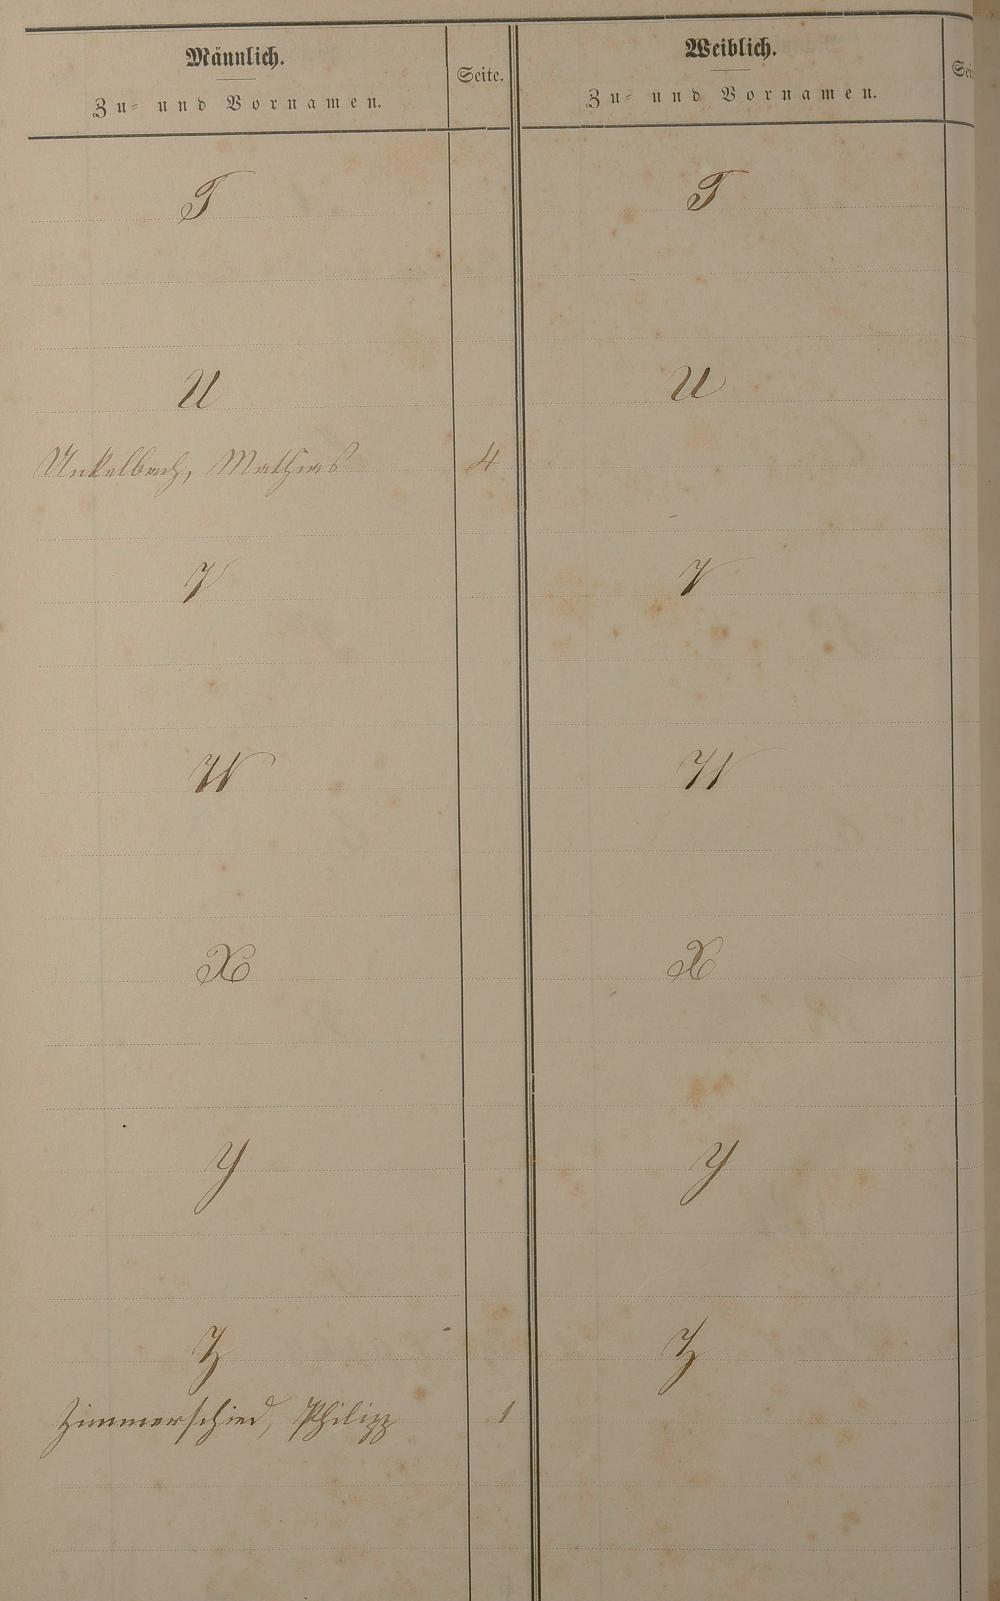 Männlich.
Zu- und Vornamen.
Seite.
Weiblich.
Zu- und Vornamen.
T
T
U
U
Unkelbach, Mathias 4
V
V
W
W
X
X
Y
Y
Z
Z
Zimmerschied, Philipp 1